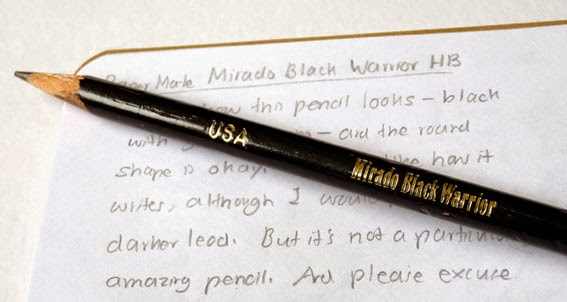 Paper Mate Mirado Black Warrior HB
how this pencil looks – black
with – and the round
shape is okay. how it
writes, although I would
darker lead. But it's not a
amazing pencil. And please excuse
USA
Mirado Black Warrior